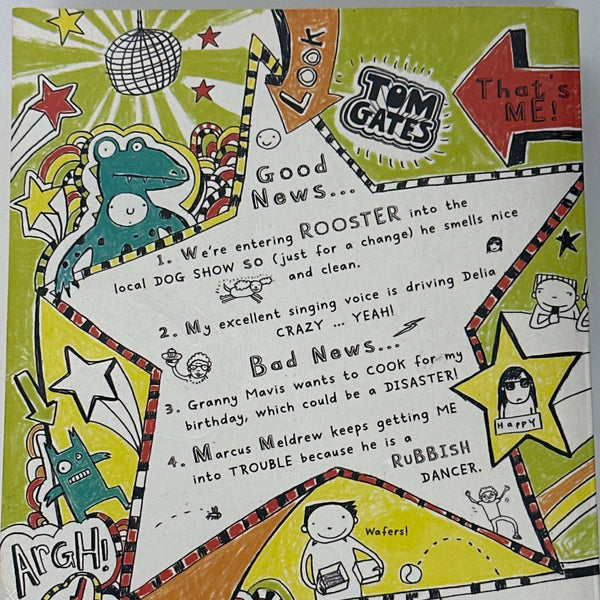 LOOK
TOM
GATES
That's
ME!
Good
News...
1. We're entering ROOSTER into the
local DOG SHOW SO (just for a change) he smells nice
and clean.
2. My excellent singing voice is driving Delia
CRAZY ... YEAH!
Bad News...
3. Granny Mavis wants to COOK for my
birthday, which could be a DISASTER!
4. Marcus Meldrew keeps getting ME
into TROUBLE because he is a
RUBBISH
DANCER.
Happy
Wafers!
ARGH!